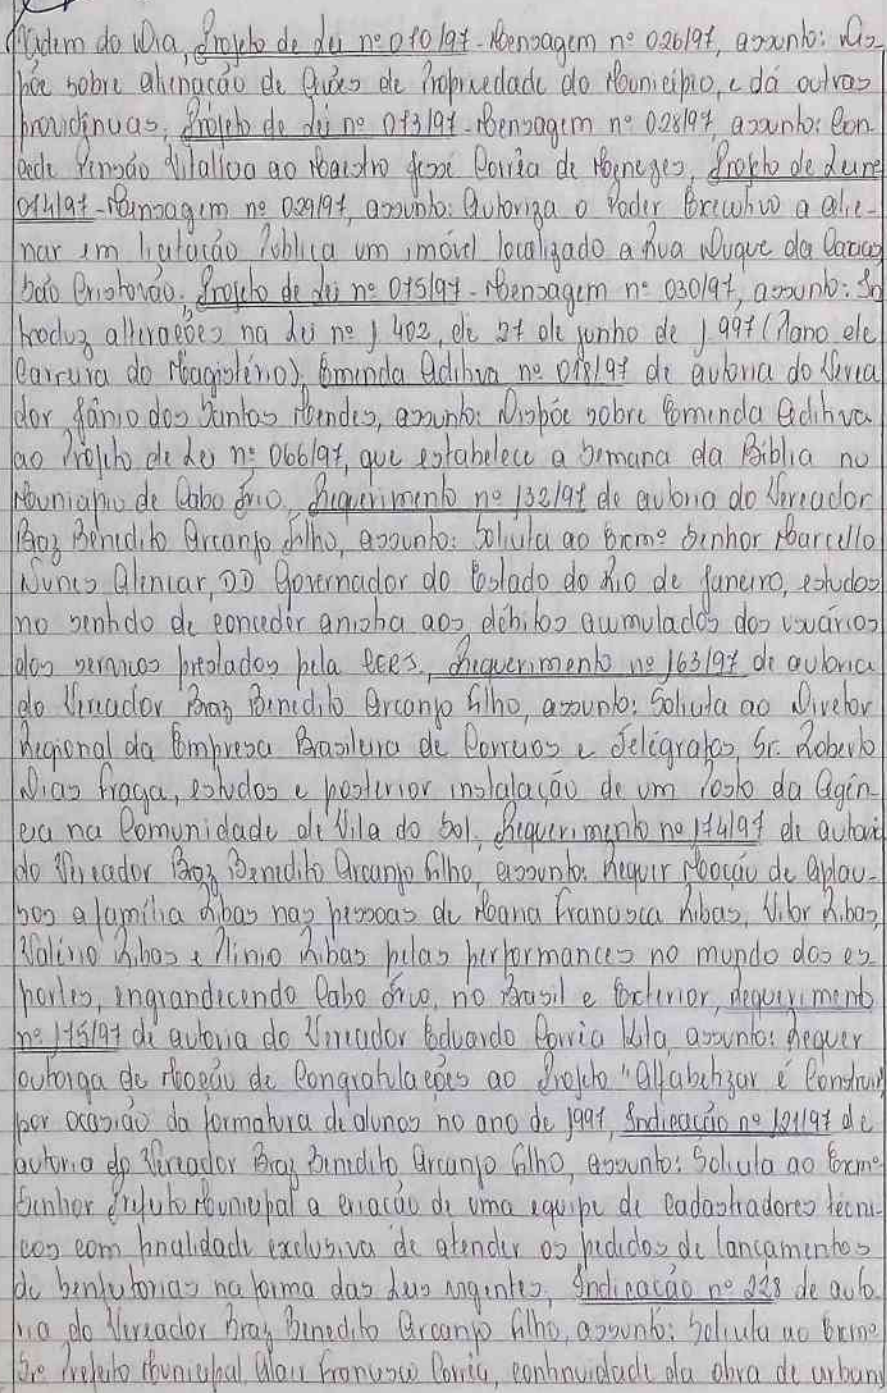 Ordem do Dia, Projeto de Lei nº 070/97 - Mensagem nº 026/97, assunto: Dis-
põe sobre alienação de Áreas de Propriedade do Município, e dá outras
providências, Projeto de Lei nº 073/97 - Mensagem nº 028/97, assunto: Con-
cede Pensão Vitalícia ao Maestro José Corrêa de Menezes, Projeto de Lei nº
074/97 - Mensagem nº 029/97, assunto: Autoriza o Poder Executivo a alie-
nar em licitação Pública um imóvel localizado a Rua Duque de Caxias
São Cristovão, Projeto de Lei nº 075/97 - Mensagem nº 030/97, assunto: In
troduz alterações na Lei nº 1402, de 27 de junho de 1997 (Plano de
Carreira do Magistério), Emenda Aditiva nº 018/97 de autoria do Verea
dor Jânio dos Santos Mendes, assunto: Dispõe sobre Emenda Aditiva
ao Projeto de Lei nº 066/97, que estabelece a Semana da Bíblia no
Município de Cabo Frio, Requerimento nº 132/97 de autoria do Vereador
Braz Benedito Arcanjo Filho, assunto: Solicita ao Exmº Senhor Marcello
Nunes Alencar, DD Governador do Estado do Rio de Janeiro, estudos
no sentido de conceder anistia aos débitos acumulados dos usuários
dos serviços prestados pela CERJ, Requerimento nº 163/97 de autoria
do Vereador Braz Benedito Arcanjo Filho, assunto: Solicita ao Diretor
Regional da Empresa Brasileira de Correios e Telégrafos, Sr. Roberto
Dias Fraga, estudos e posterior instalação de um Posto da Agên-
cia na Comunidade de Vila do Sol, Requerimento nº 174/97 de autoria
do Vereador Braz Benedito Arcanjo Filho, assunto: Requer Moção de Aplau-
sos a família Ribas nas pessoas de Joana Francisca Ribas, Vitor Ribas,
Valério Ribas e Plínio Ribas pelas performances no mundo dos es-
portes, engrandecendo Cabo Frio, no Brasil e Exterior, Requerimento
nº 175/97 de autoria do Vereador Eduardo Corrêa Kita, assunto: Requer
outorga de Moção de Congratulações ao Projeto "Alfabetizar é Construir
por ocasião da formatura de alunos no ano de 1997, Indicação nº 121/97 de
autoria do Vereador Braz Benedito Arcanjo Filho, assunto: Solicita ao Exmº
Senhor Prefeito Municipal a criação de uma equipe de Cadastradores técni-
cos com finalidade exclusiva de atender os pedidos de lançamentos
de benfeitorias na forma das Leis vigentes, Indicação nº 228 de auto
ria do Vereador Braz Benedito Arcanjo Filho, assunto: Solicita ao Exmº
Srº Prefeito Municipal Alair Francisco Corrêa, continuidade da obra de urbani